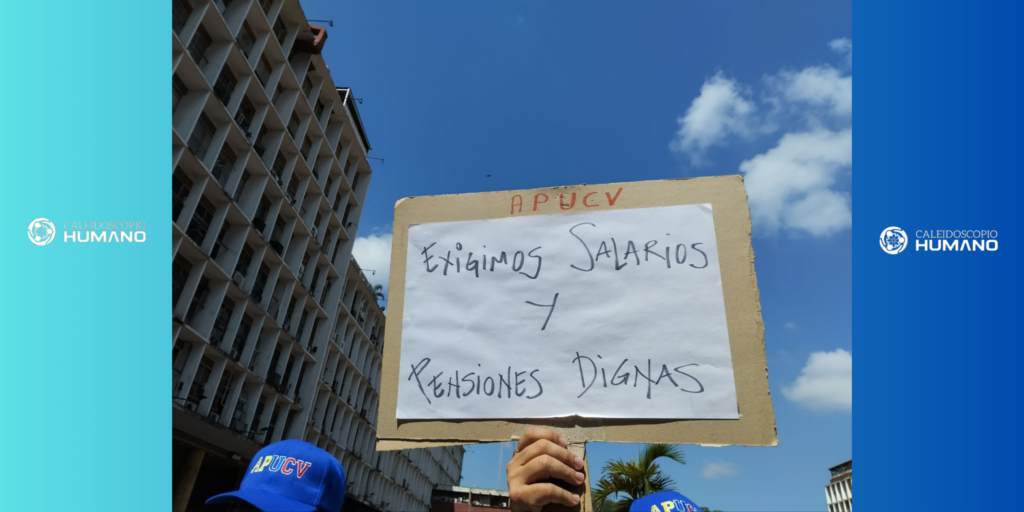 CALEIDOSCOPIO
HUMANO
APUCV
EXIGIMOS SALARIOS
Y
PENSIONES DIGNAS
APUCV
APUCV
CALEIDOSCOPIO
HUMANO